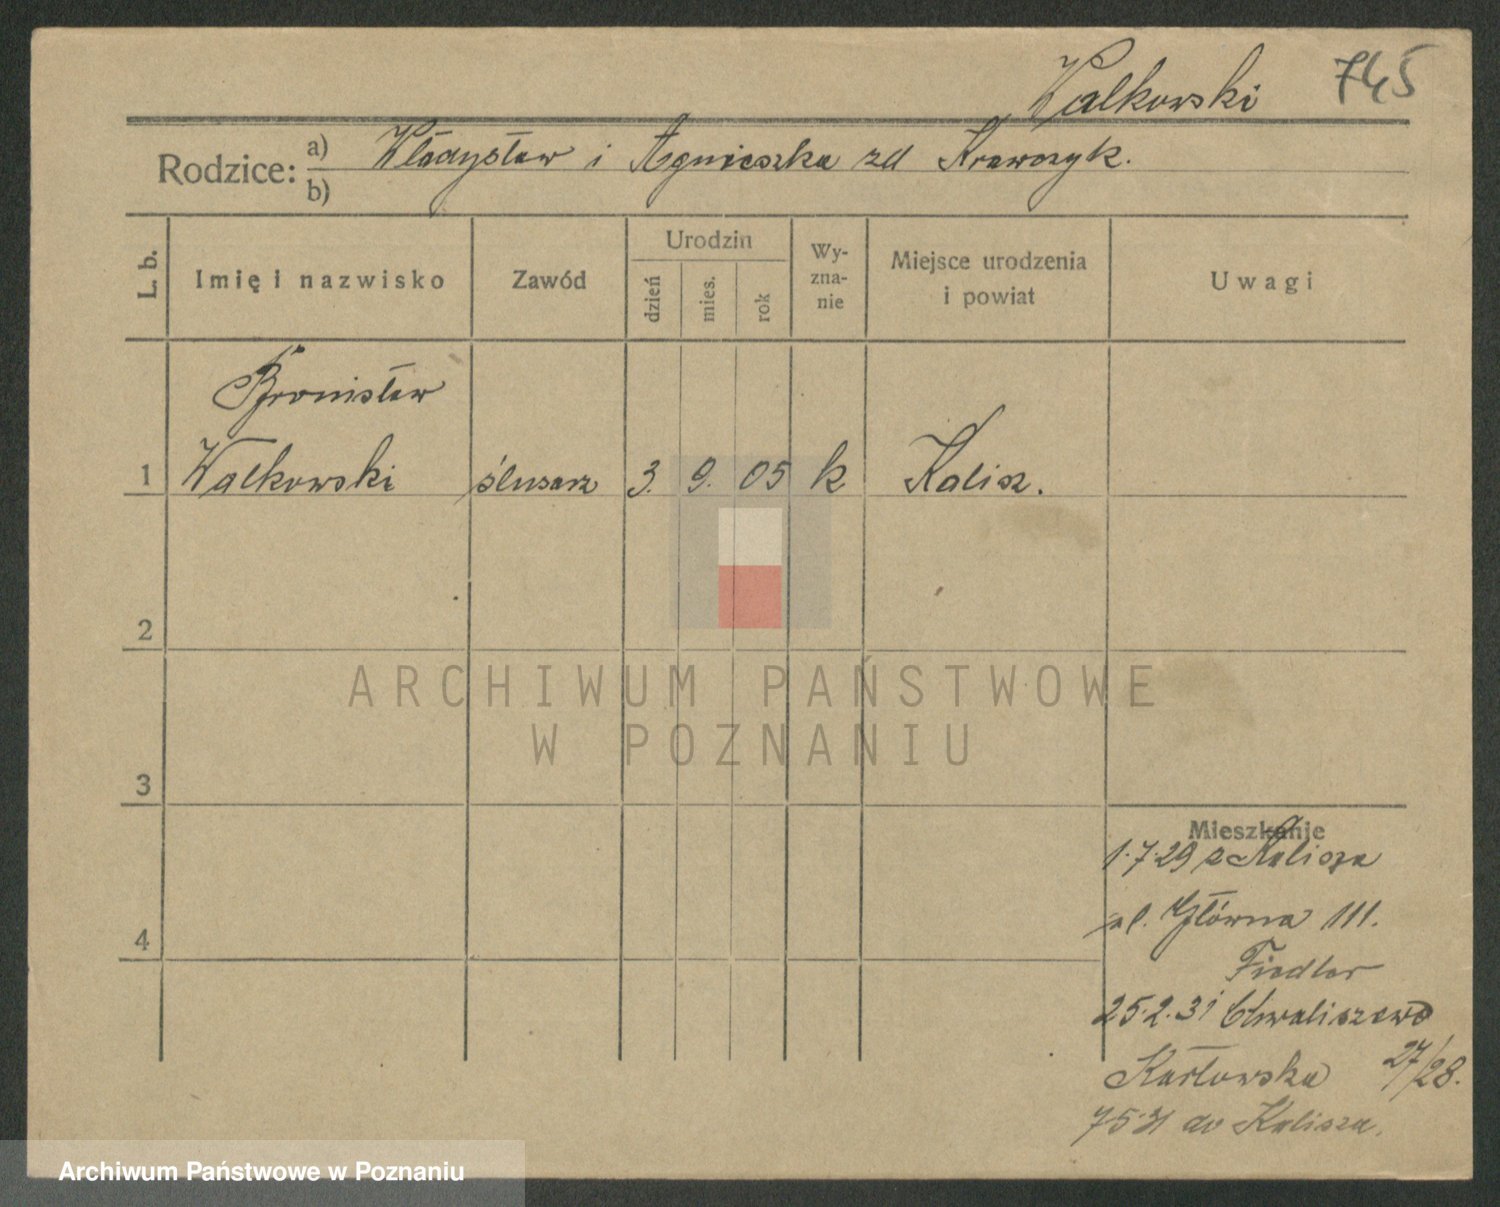 Walkowski 745
Rodzice: a) Władysław i Agnieszka zd Krawczyk.
b)
L. b. Imię i nazwisko Zawód Urodzin dzień mies. rok Wy-zna-nie Miejsce urodzenia i powiat Uwagi
Bronisław
1 Walkowski ślusarz 3. 9. 05 k Kalisz.
2
ARCHIWUM PAŃSTWOWE
W POZNANIU
3
Mieszkanie
1.7.29 z Kalisza
4 ul. Główna 111.
Fiedler
25.2.31 Chwaliszewo
Karłowska 27/28.
7.5.31 do Kalisza.
Archiwum Państwowe w Poznaniu